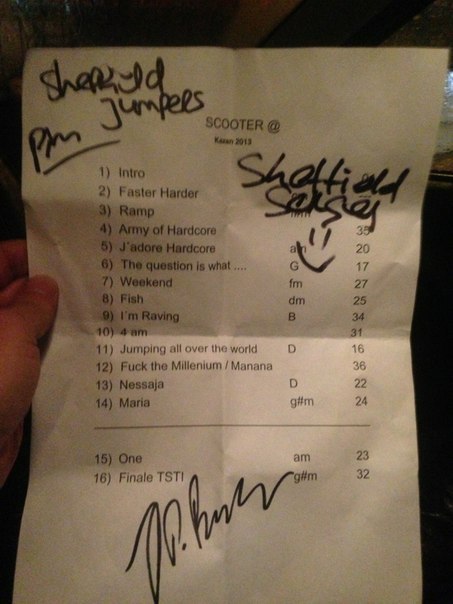 Sheffield
Jumpers
SCOOTER @
Kazan 2013
Sheffield
1) Intro
2) Faster Harder
3) Ramp
4) Army of Hardcore 35
5) J´adore Hardcore am 20
6) The question is what .... G 17
7) Weekend fm 27
8) Fish dm 25
9) I´m Raving B 34
10) 4 am 31
11) Jumping all over the world D 16
12) Fuck the Millenium / Manana 36
13) Nessaja D 22
14) Maria g#m 24
15) One am 23
16) Finale TSTI g#m 32